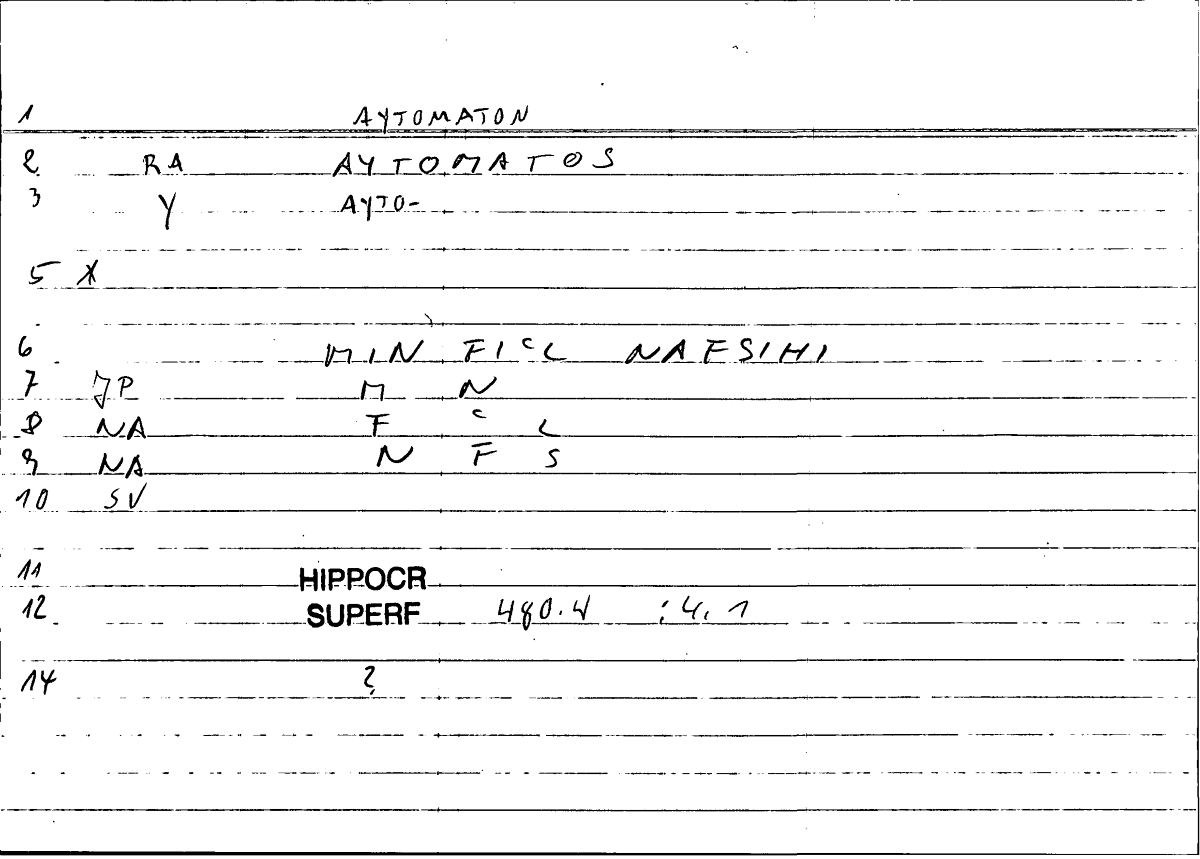 1 AYTOMATON
2 RA AYTOMATOS
3 Y AYTO-
5 X
6 MIN FI‘L NAFSIHI
7 JP M N
8 NA F ‘ L
9 NA N F S
10 SV
11 HIPPOCR
12 SUPERF 480.4 :4,1
14 ?